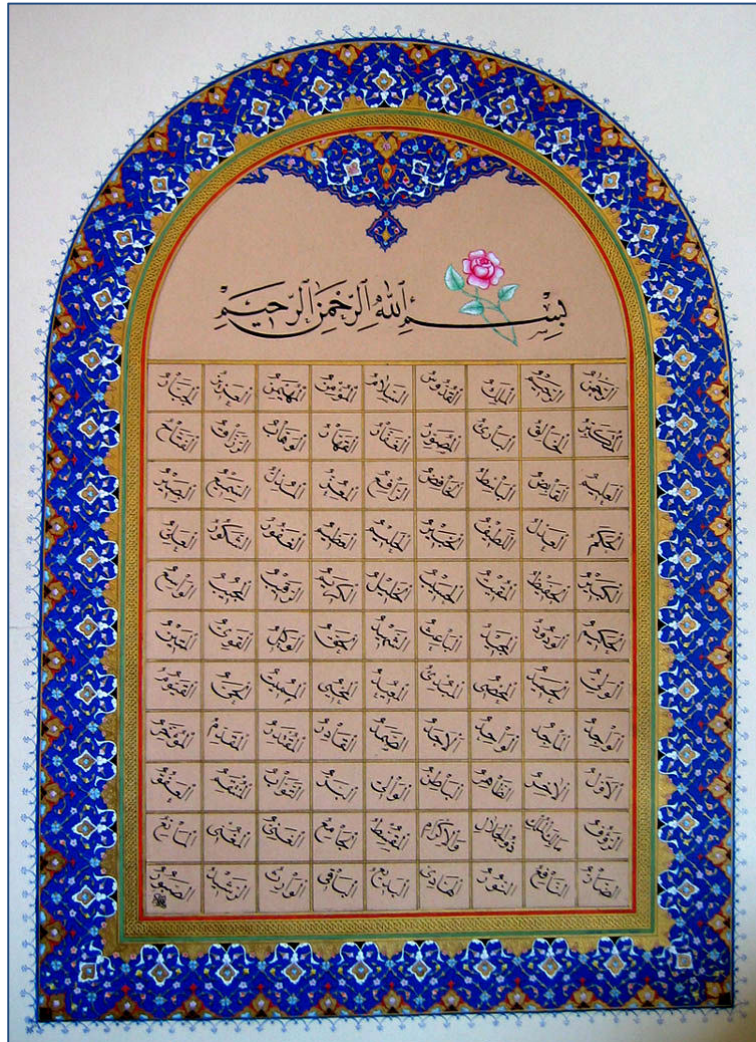 بِسْمِ اللهِ الرَّحْمٰنِ الرَّحِيْمِ
الرحمن الرحيم الملك القدوس السلام المؤمن المهيمن العزيز الجبار
المتكبر الخالق البارئ المصور الغفار القهار الوهاب الرزاق الفتاح
العليم القابض الباسط الخافض الرافع المعز المذل السميع البصير
الحكم العدل اللطيف الخبير الحليم العظيم الغفور الشكور العلي
الكبير الحفيظ المقيت الحسيب الجليل الكريم الرقيب المجيب الواسع
الحكيم الودود المجيد الباعث الشهيد الحق الوكيل القوي المتين
الولي الحميد المحصي المبدئ المعيد المحيي المميت الحي القيوم
الواجد الماجد الواحد الاحد الصمد القادر المقتدر المقدم المؤخر
الاول الاخر الظاهر الباطن الوالي البر التواب المنتقم العفو
الرؤف مالك الملك ذو الجلال والاكرام المقسط الجامع الغني المغني المانع
الضار النافع النور الهادي البديع الباقي الوارث الرشيد الصبور